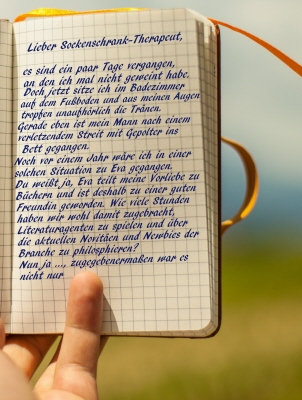 Lieber Sockenschrank-Therapeut,
es sind ein paar Tage vergangen,
an den ich mal nicht geweint habe.
Doch jetzt sitze ich im Badezimmer
auf dem Fußboden und aus meinen Augen
tropfen unaufhörlich die Tränen.
Gerade eben ist mein Mann nach einem
verletzendem Streit mit Gepolter ins
Bett gegangen.
Noch vor einem Jahr wäre ich in einer
solchen Situation zu Eva gegangen.
Du weißt ja, Eva teilt meine Vorliebe zu
Büchern und ist deshalb zu einer guten
Freundin geworden. Wie viele Stunden
haben wir wohl damit zugebracht,
Literaturagenten zu spielen und über
die aktuellen Novitäten und Newbies der
Branche zu philosphieren?
Nun ja ..., zugegebenermaßen war es
nicht nur